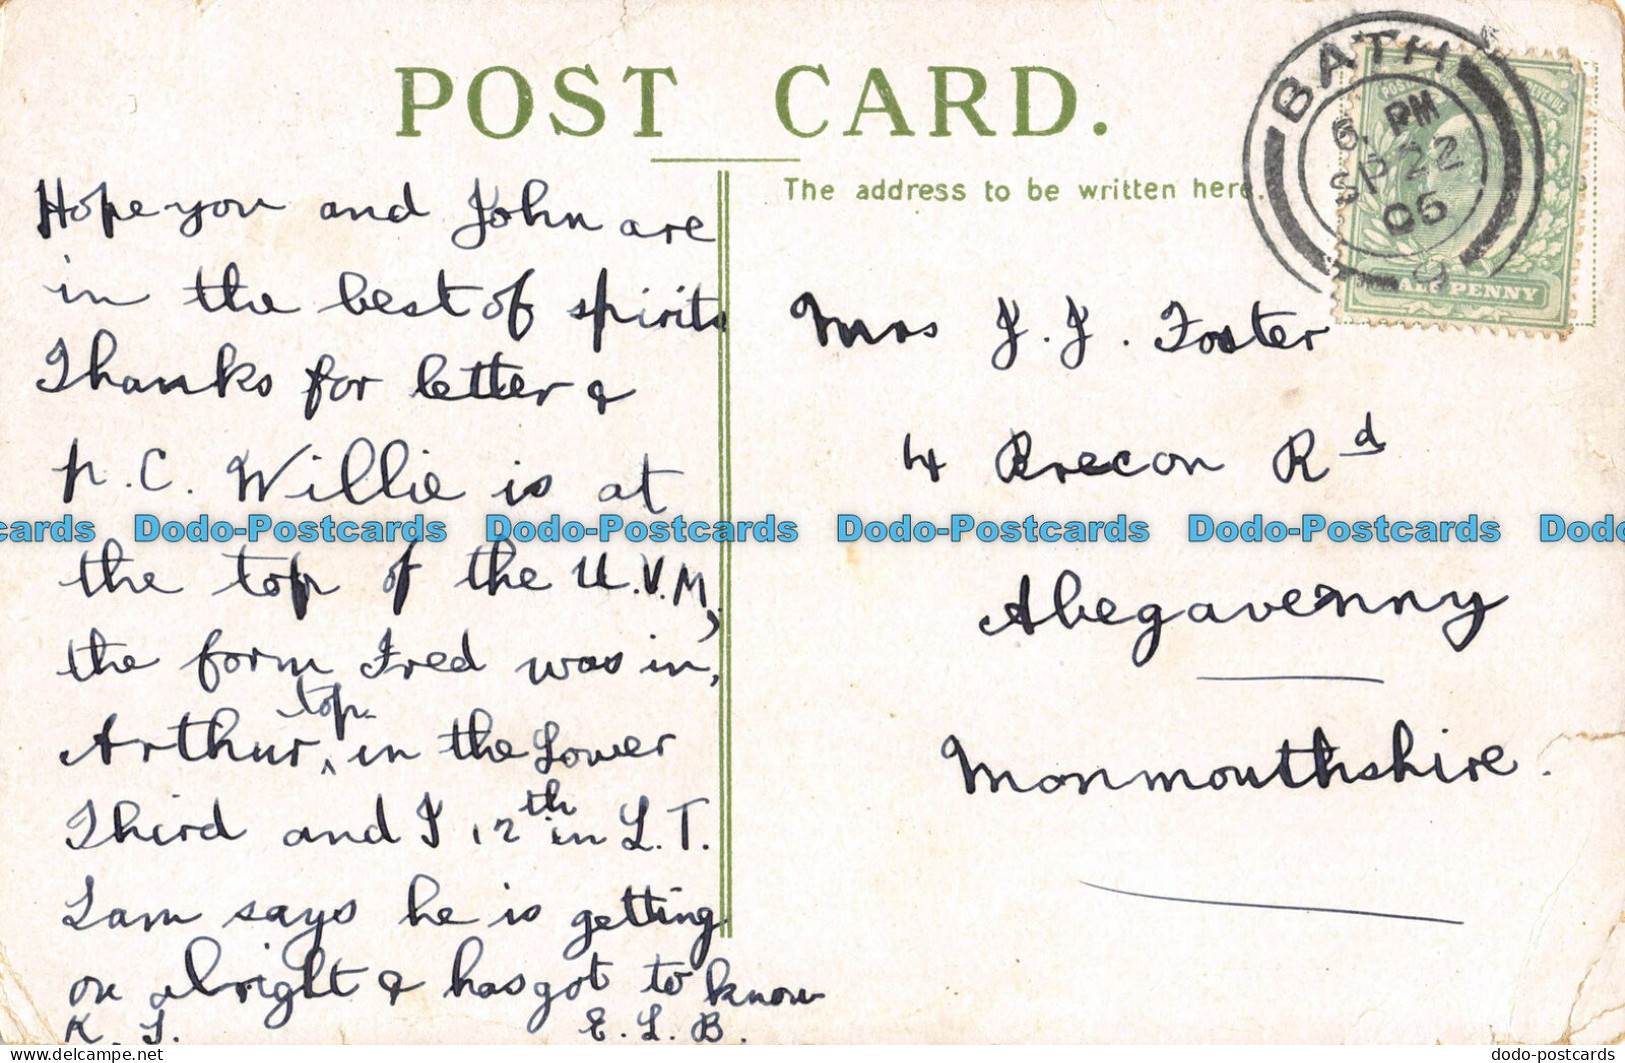 POST CARD.
The address to be written here.
BATH
6. PM
SP 22
06
9
HALFPENNY
Hope you and John are
in the best of spirits
Thanks for letter &
p.C. Willie is at
the top of the U.V.M,
the form Fred was in,
Arthur, top in the Lower
Third and I 12th in L.T.
Sam says he is getting
on alright & has got to know
K. J. E. L. B.
Mrs J. J. Foster
4 Brecon Rd
Abegavenny
Monmouthshire.
Dodo-Postcards Dodo-Postcards Dodo-Postcards Dodo-Postcards
www.delcampe.net
dodo-postcards